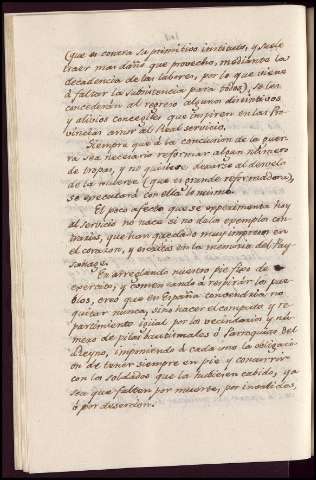 (que es contra su primitivo instituto, y suele
traer mas daño que provecho, mediante la
decadencia de las labores, por lo que viene
à faltar la subsistencia para todos), se les
concederán al regreso algunos distintivos
y alivios concegiles que inspiren en las Pro-
vincias amor al Real servicio.
Siempre que à la conclusion de la guer-
ra sea necesario reformar algun número
de tropas, y no quisiere dexarse al desvelo
de la muerte (que es grande reformadora),
se executará con ella lo mismo.
El poco afecto que se experimenta hoy
al servicio no nace si no de los exemplos con-
trarios, que han quedado muy impresos en
el corazon, y escritos en la memoria del Pay-
sanage.
En arreglando nuestro pie fijo de
exercito, y comenzando à respirar los pue-
blos, creo que en España convendria no
quitar nunca, sino hacer el computo y re-
partimiento igual por los vecindarios y nú-
mero de pilas bautismales ó Parroquias del
Reyno, imponiendo à cada uno la obligaci-
on de tener siempre en pie y concurrir
con los soldados que la hubiesen cabido, ya
sea que falten por muerte, por invalidos,
ó por desercion.